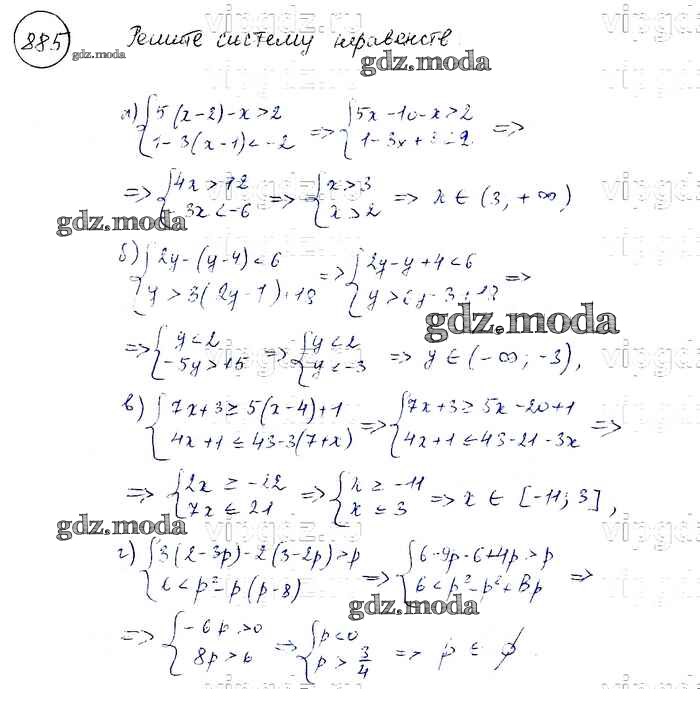 885
Решите систему неравенств
gdz.moda
а) { 5(x-2)-x>2
1-3(x-1)<-2
=> { 5x-10-x>2
1-3x+
=>
=> { 4x>12
3x<-6
=> { x>3
x>2
=> x ∈ (3, +∞)
gdz.moda
б) { 2y-(y-4)<6
y>3(2y-1)+18
=> { 2y-y+4<6
=>
gdz.moda
=> { y<2
-5y>15
=> { y<2
y<-3
=> y ∈ (-∞; -3),
в) { 7x+3≥5(x-4)+1
4x+1≤43-3(7+x)
=> { 7x+3≥5x-20+1
4x+1≤43-21-3x
=>
=> { 2x≥-22
7x≤21
=> { x≥-11
x≤3
=> x ∈ [-11; 3],
gdz.moda
г) { 3(2-3p)-2(3-2p)>p
6<p²-p(p-8)
=> { 6-9p-6+4p>p
6<p²-p²+8p
=>
gdz.moda
=> { -6p>0
8p>6
=> { p<0
p>3/4
=> p ∈ ∅
vipgdz.ru